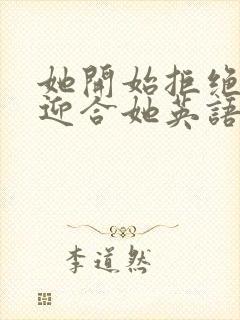 她開始拒绝
迎合她英語
李道然